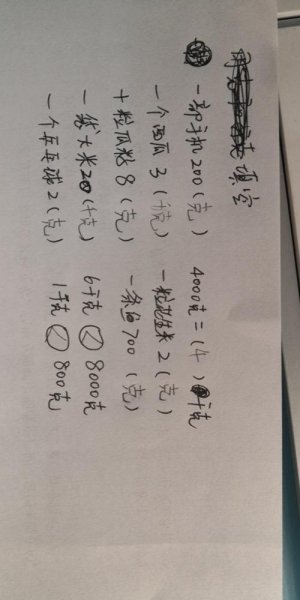 填空
一部手机200(克) 4000克=(4)千克
一个西瓜3(千克) 一粒花生米2(克)
十粒瓜籽8(克) 一条鱼700(克)
一袋大米20(千克) 6千克 8000克
一个乒乓球2(克) 1千克 800克